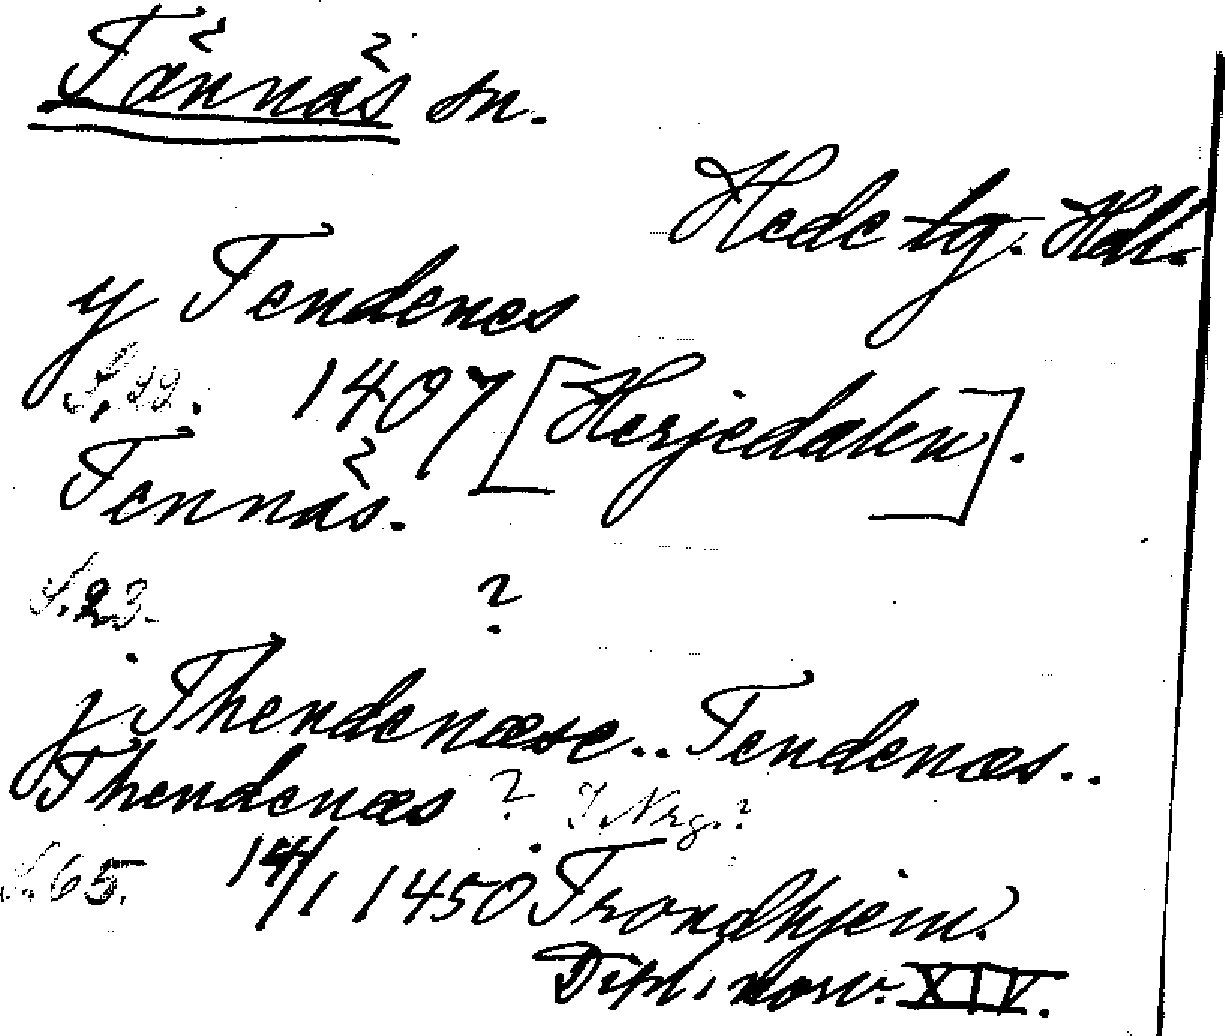 Tännäs sn.
Hede tg. Hdl.
y Tendenes
S. 22. 1407 [Herjedalen].
Tennäs.
S. 23. ?
j Thendenæse.. Tendenæs..
Thendenæs ? I Nrg.?
S. 65. 14/1 1450 Trondhjem.
Dipl. norv. XIV.